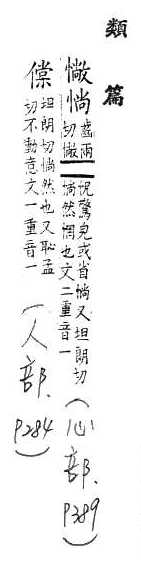 類篇
懒惝齒兩切懒
怳驚皃或省惝又坦朗切
惝然惘也文二重音一
(心部.P389)
儻坦朗切倘然也又恥孟
切不動意文一重音一
(人部.P284)